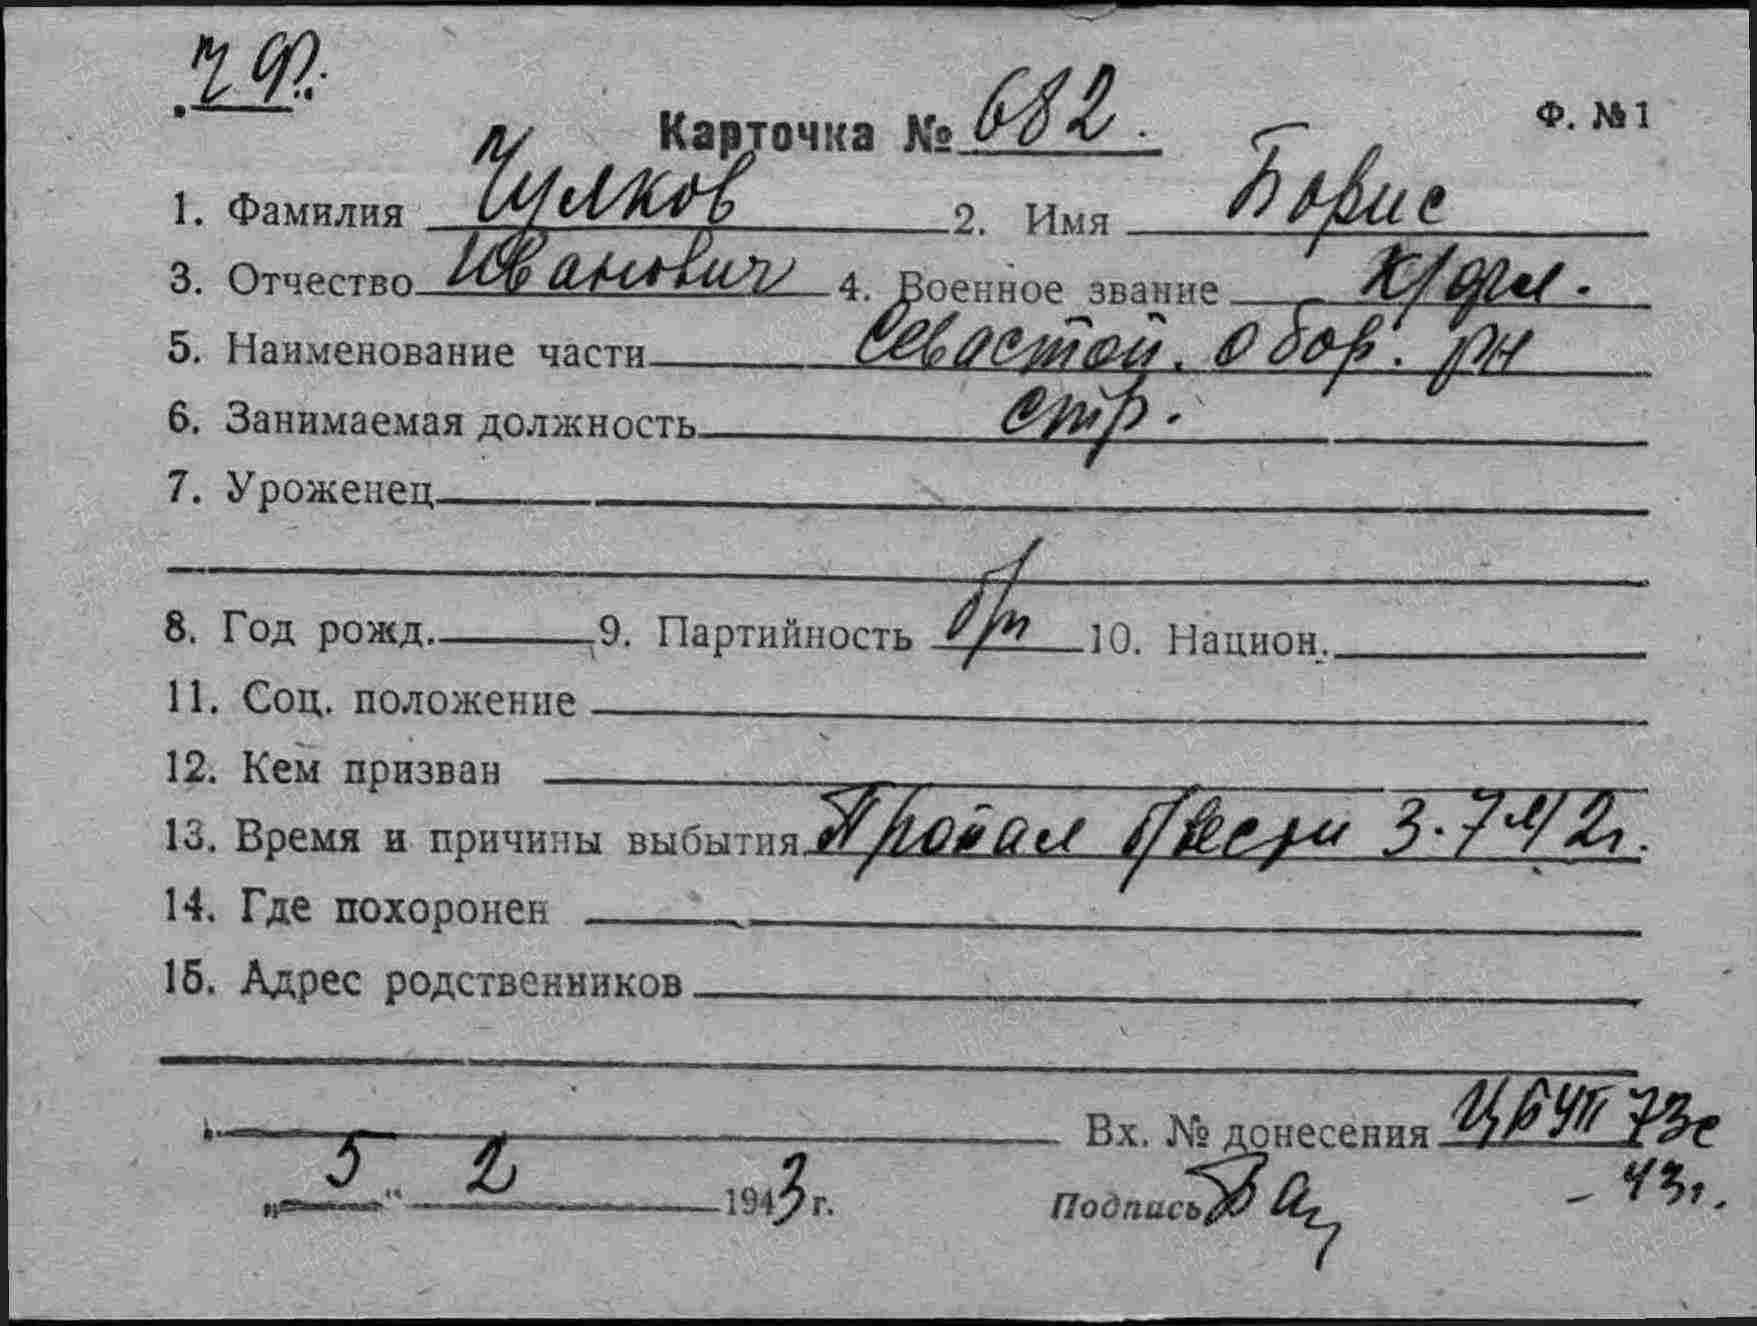 Ч.Ф.
Карточка № 682.
Ф. №1
1. Фамилия Чулков 2. Имя Борис
3. Отчество Иванович 4. Военное звание к/фл.
5. Наименование части Севастоп. обор. рн
6. Занимаемая должность стр.
7. Уроженец
8. Год рожд. 9. Партийность б/п 10. Национ.
11. Соц. положение
12. Кем призван
13. Время и причины выбытия Пропал б/вести 3.7.42г.
14. Где похоронен
15. Адрес родственников
Вх. № донесения ЦБУП 73с
„5“ 2 1943 г. Подпись - 43г.